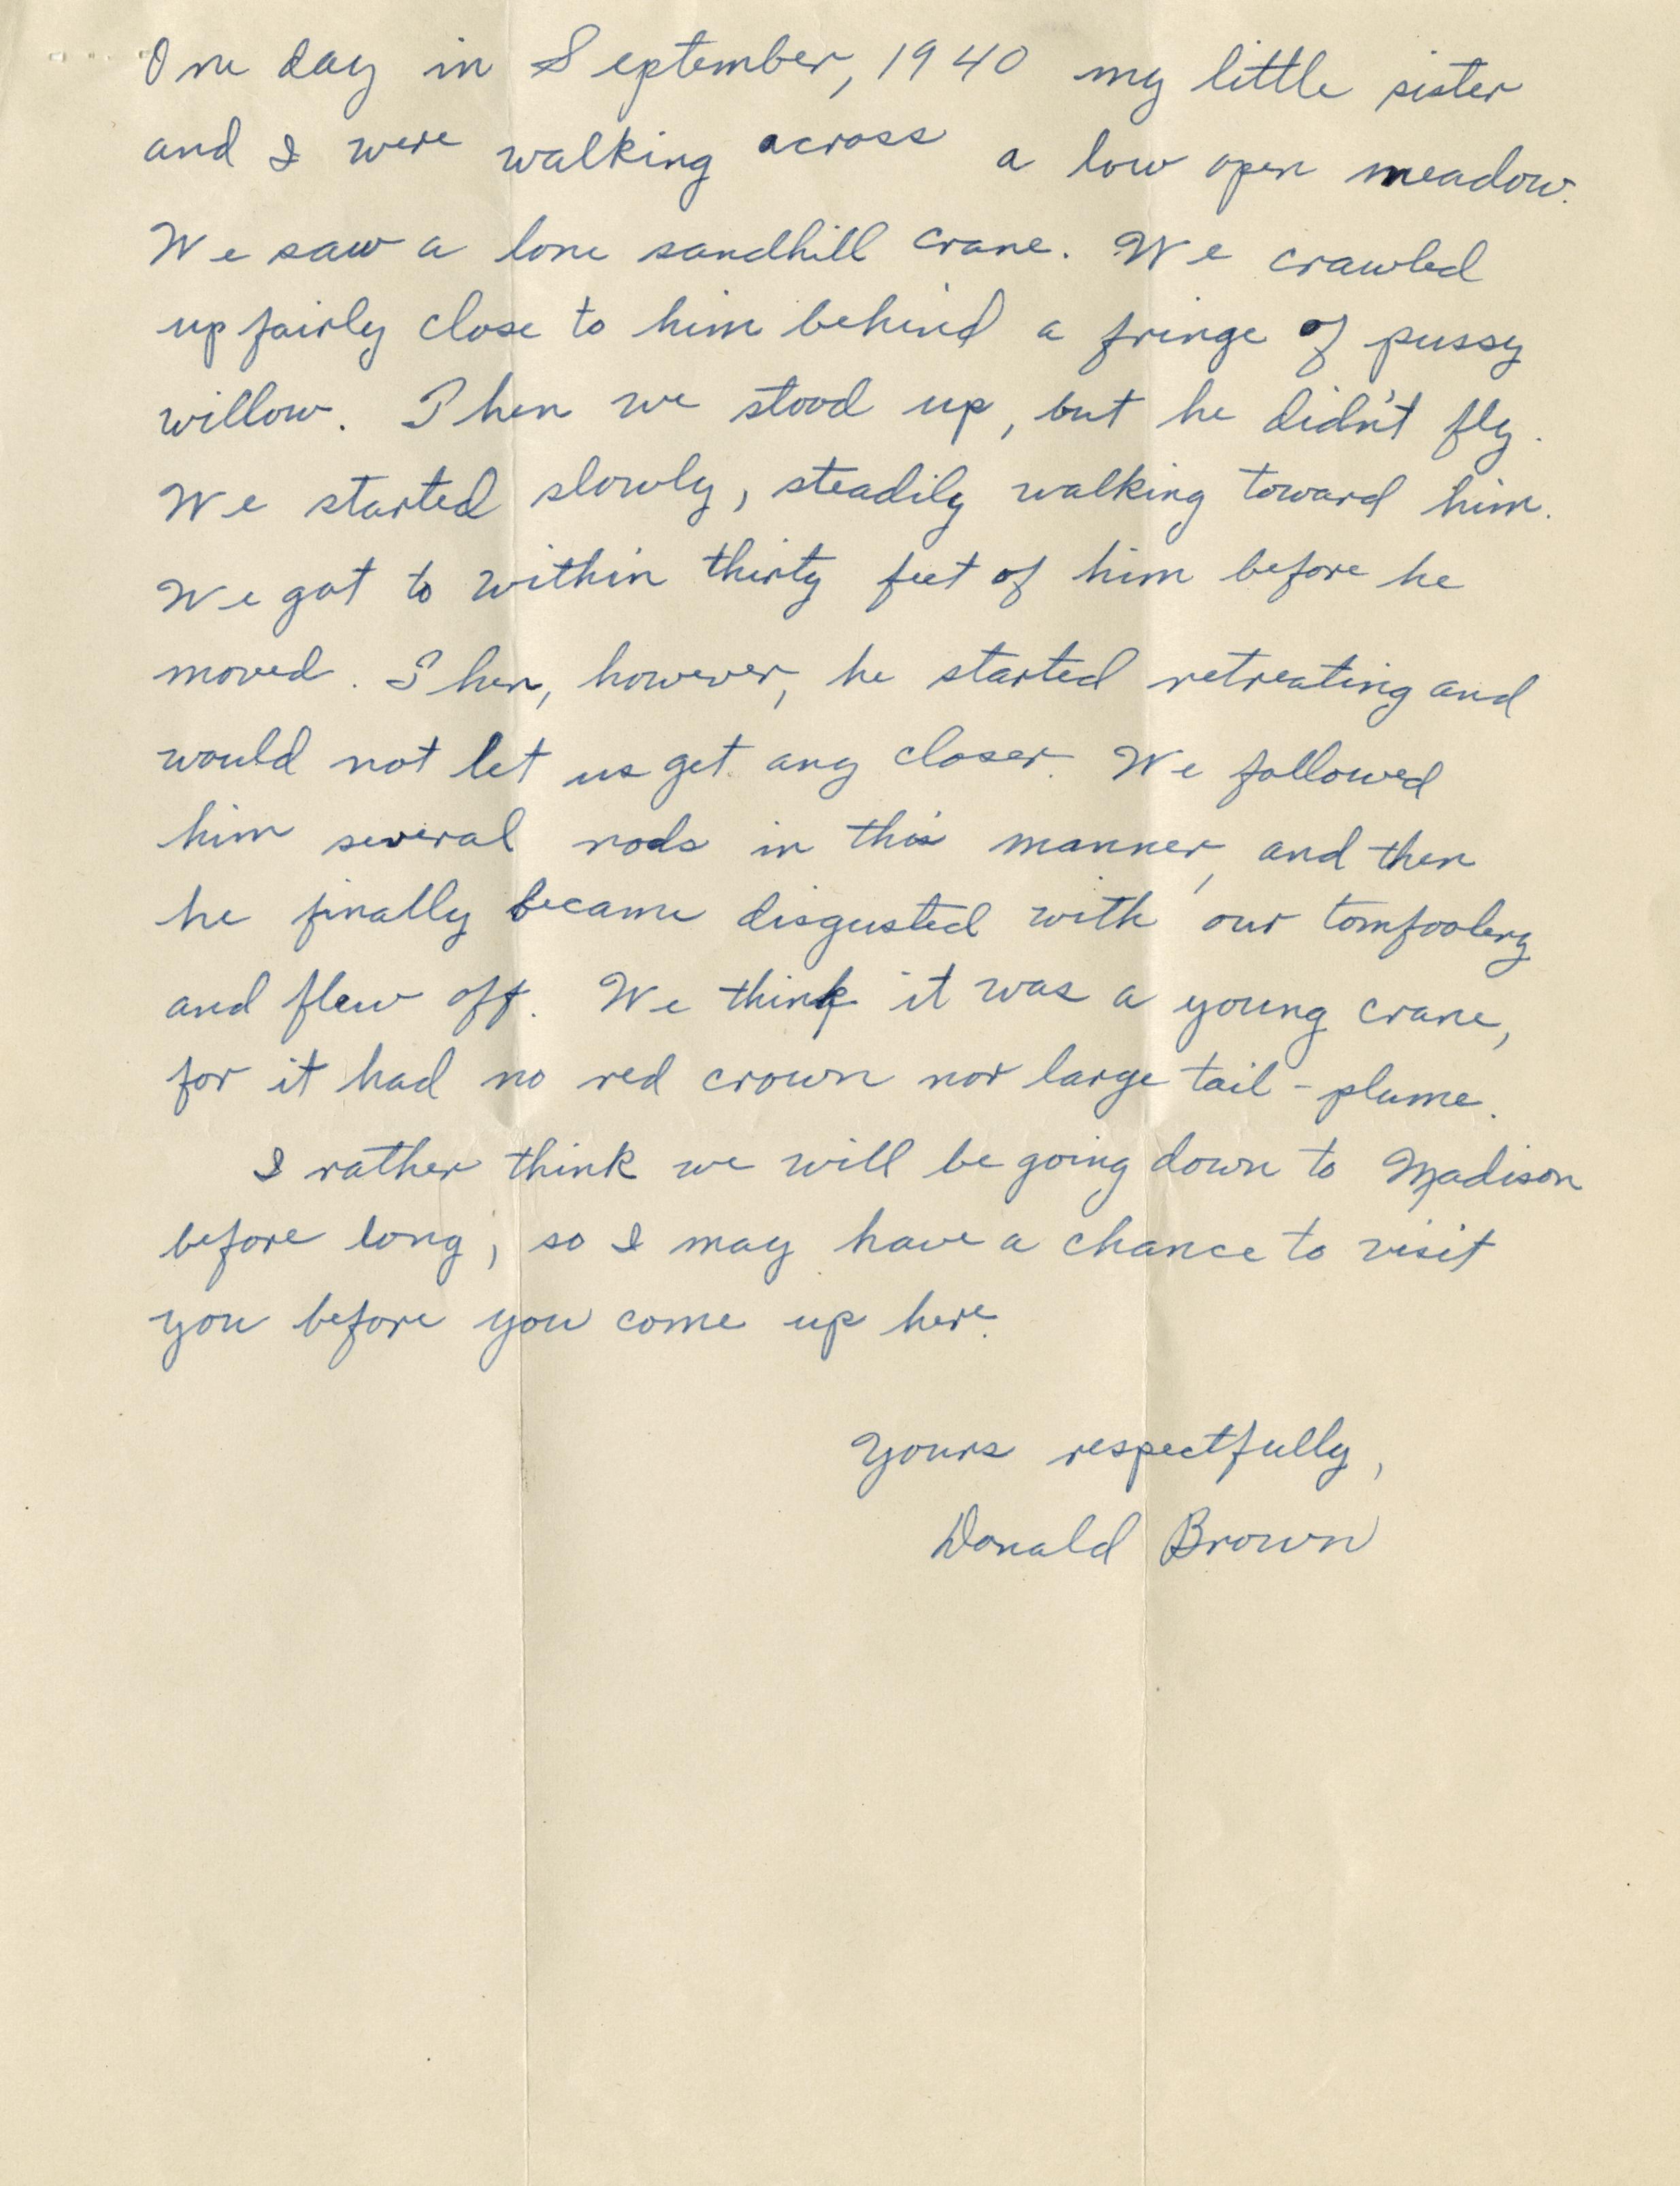 One day in September, 1940 my little sister
and I were walking across a low open meadow.
We saw a lone sandhill crane. We crawled
up fairly close to him behind a fringe of pussy
willow. Then we stood up, but he didn't fly.
We started slowly, steadily walking toward him.
We got to within thirty feet of him before he
moved. Then, however, he started retreating and
would not let us get any closer. We followed
him several rods in this manner, and then
he finally became disgusted with our tomfoolery
and flew off. We think it was a young crane,
for it had no red crown nor large tail-plume.
I rather think we will be going down to Madison
before long; so I may have a chance to visit
you before you come up here.
Yours respectfully,
Donald Brown